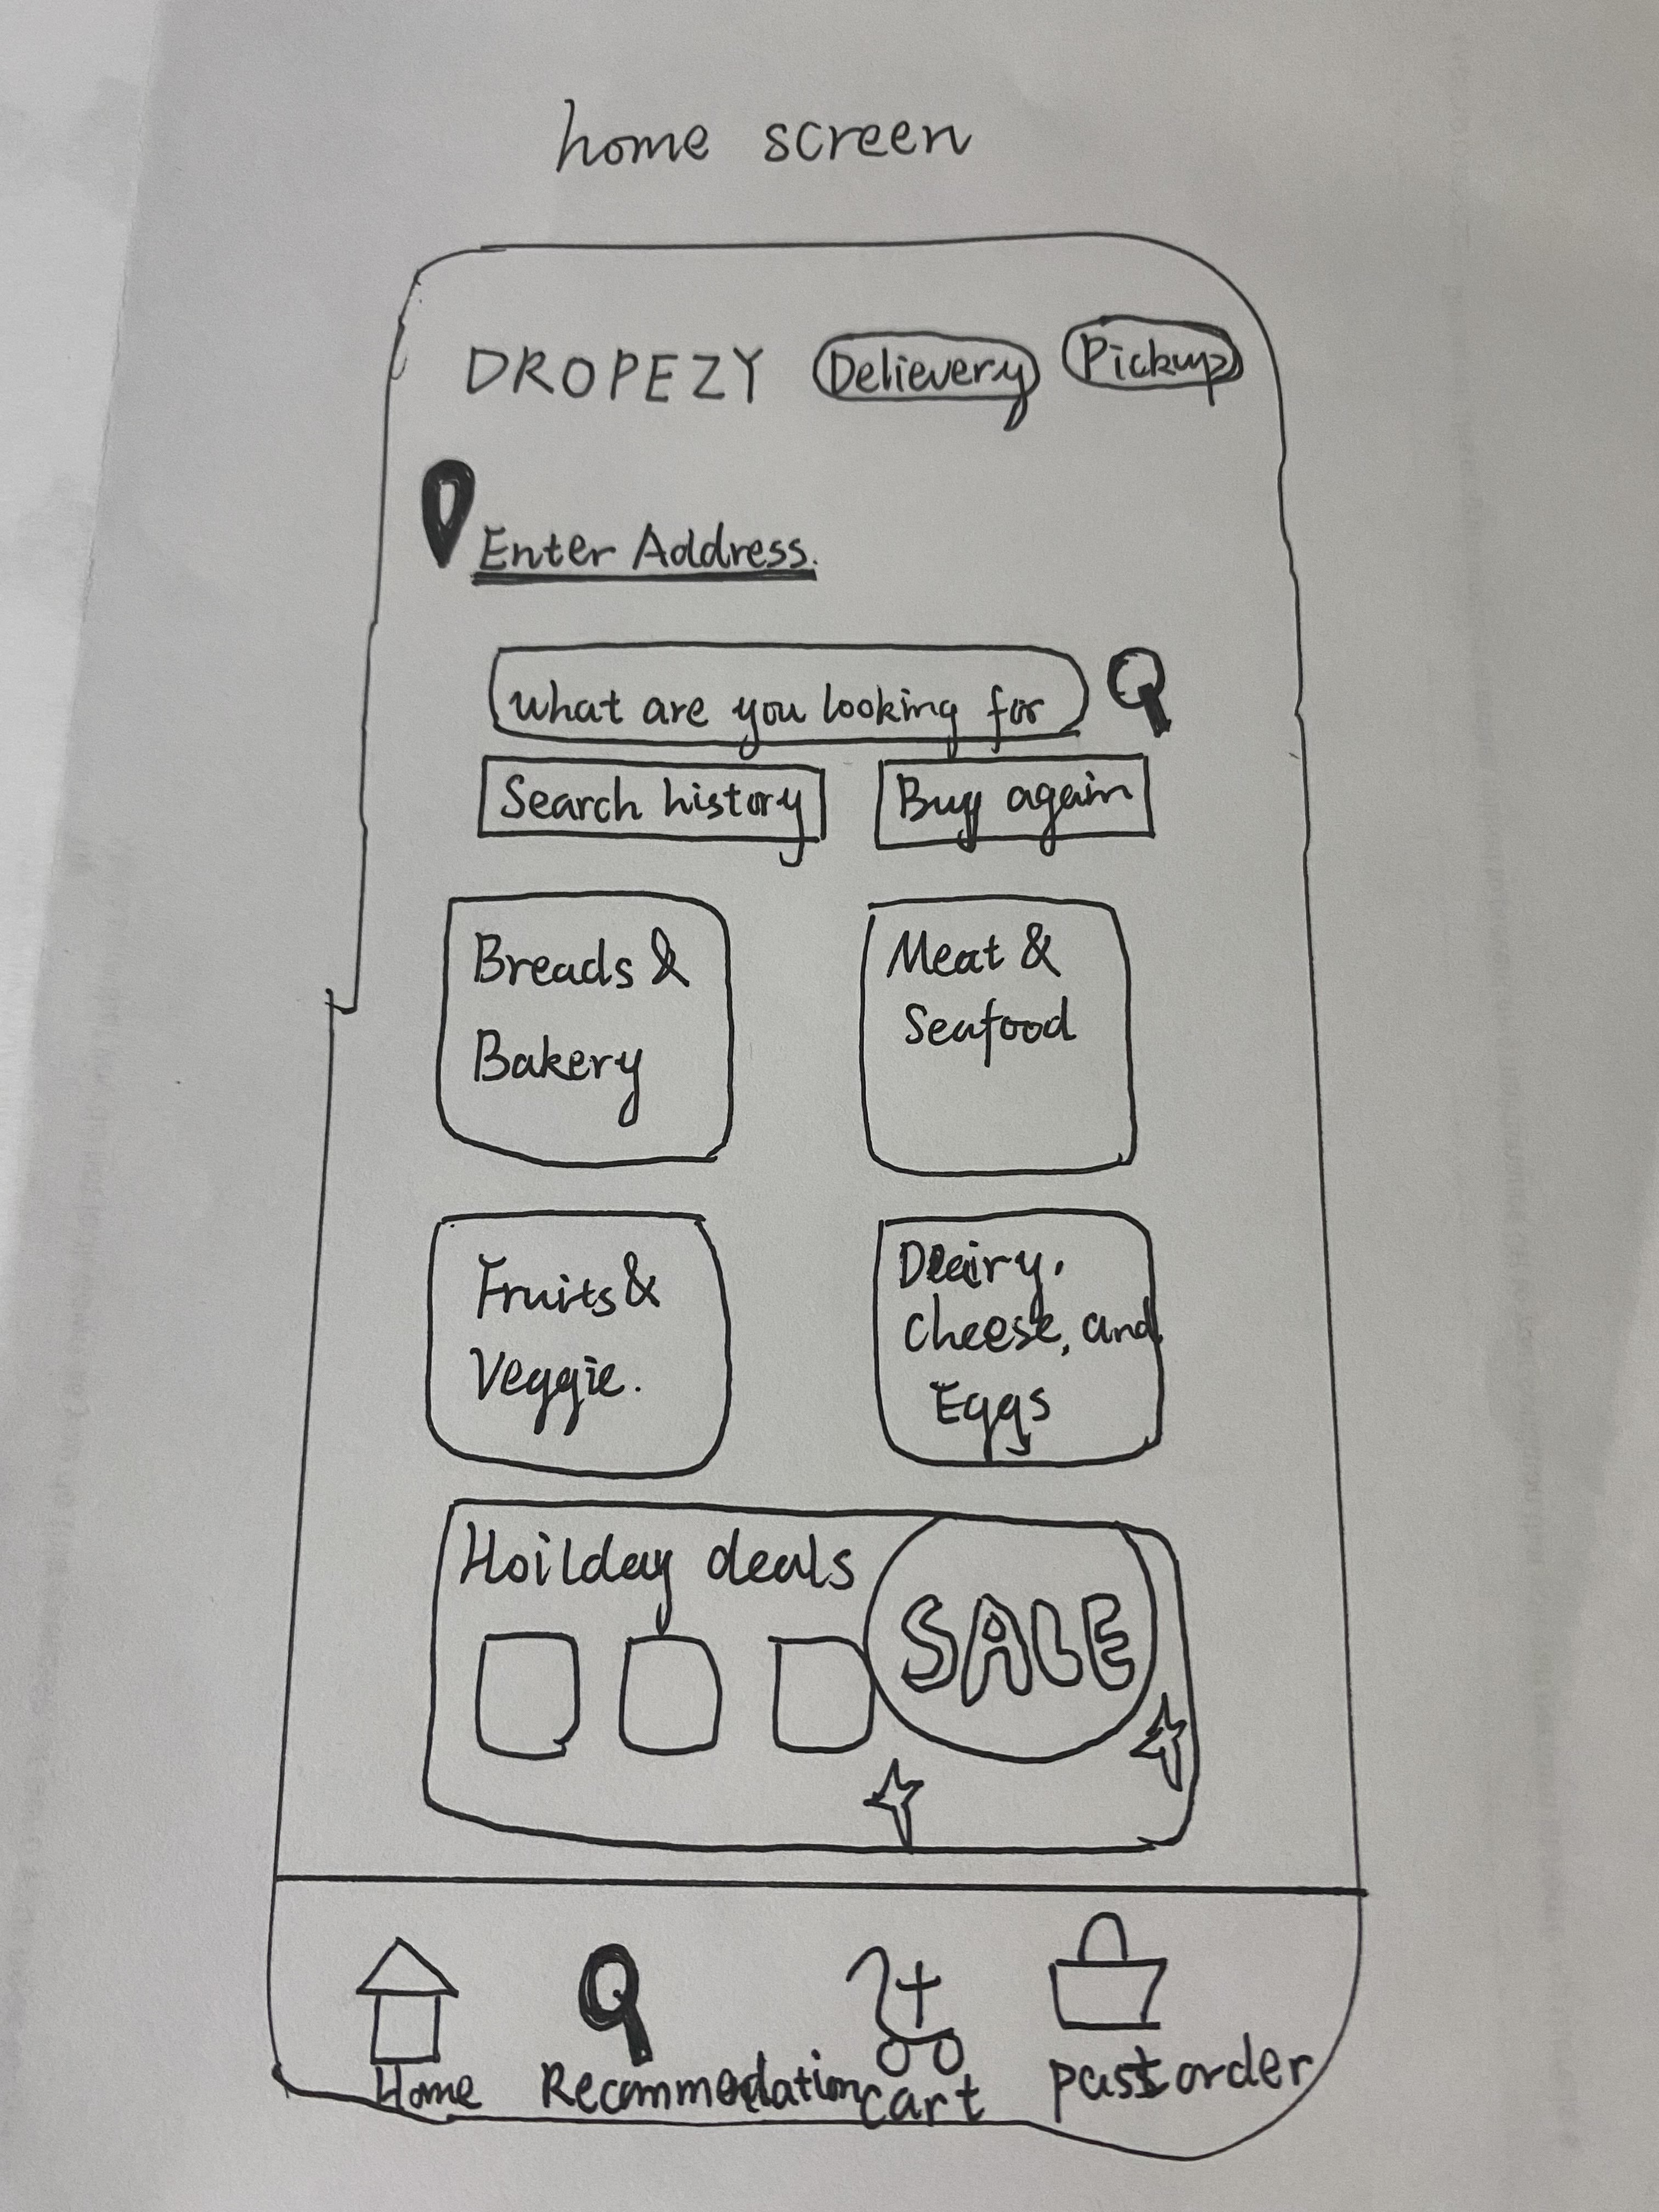 home screen
DROPEZY Delievery Pickup
Enter Address.
what are you looking for
Search history Buy again
Breads &
Bakery
Meat &
Seafood
Fruits &
Veggie.
Dairy,
cheese, and
Eggs
Hoilday deals
SALE
Home Recommedation cart past order